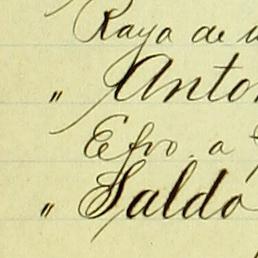 Raya de
" Anto
Efvo. a
" Saldo